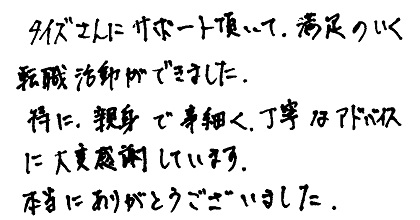 タイズさんにサポート頂いて、満足のいく
転職活動ができました。
特に、親身で事細く、丁寧なアドバイス
に大変感謝しています。
本当にありがとうございました。